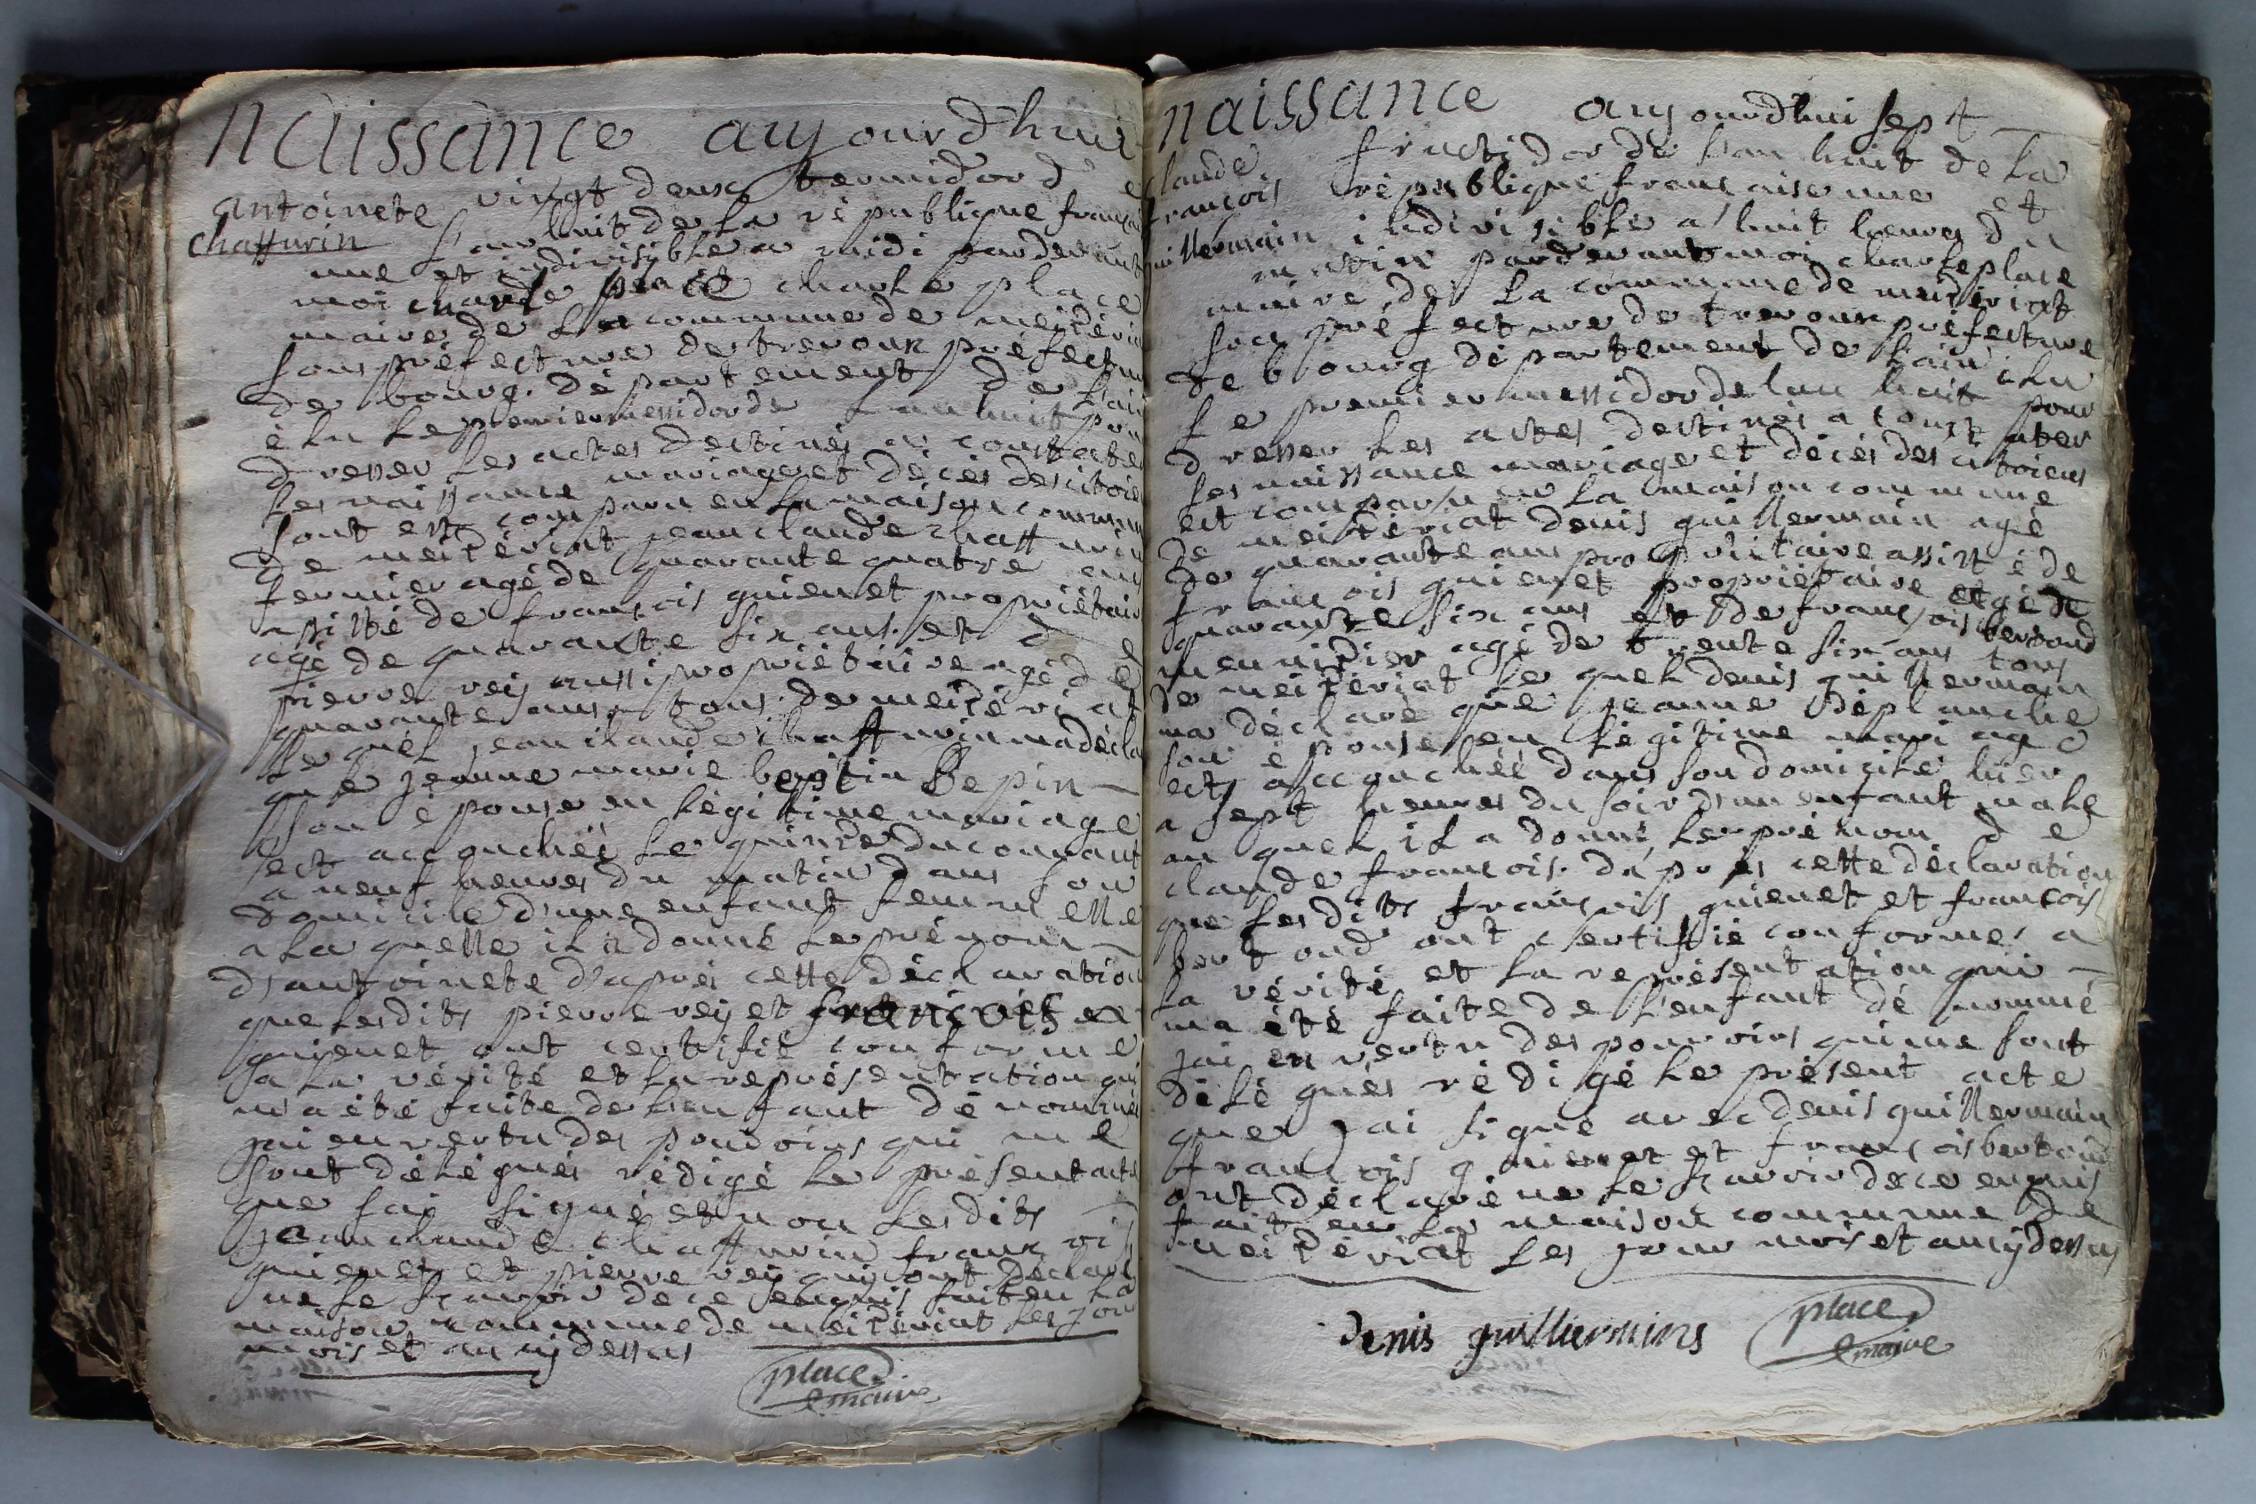 naissance aujourd'hui
antoinete vingt deux termidor d e
chaffurin l'an huit de la république françai
une et indivisyble a midi pardevant
moi charle place charle place
maire de la commune de meizéria
sous préfecture de trevoux préfectur
de bourg département de l'ain
élu le premier messidor de l'an huit pou
dresser les actes destinés a constater
les naissance mariage et décès des citoie
sont est comparu en la maison commun
de meizériat jean claude chaffurin
fermier agé de quarante quatre ans
assisté de françois guienet propriétair
agé de quarante six ans et d e
pierre rey aussi propriétaire agé de
quarante ans tous de meizériat
lequel jean claude chaffurin ma décla
que jeanne marie Bepin
son épouse en légitime mariage
est accouchée le quinze du courant
a neuf heures du matin dans son
domicile d'une enfant femmelle
a la quelle il a donné le prénom
d'antoinete d'après cette déclaration
que les dits pierre rey et françois
guienet ont certifié conforme
a la vérité et la représentation qui
m'a été faite de l'enfant dénommé
jai en vertu des pouvoirs qui me
sont délégués rédigé le présent acte
que jai signé et non les dits
jean claude chaffurin françois
guienet et pierre rey qui ont déclaré
ne le sçavoir de ce enquis fait en la
maison commune de meizériat les jour
mois et an cy dessus
place
maire
naissance aujourd'hui sept
claude fructidor de l'an huit de la
françois république française une et
guillermain indivisible a huit heures du
matin pardevant moi charle place
maire de la commune de meizériat
sous préfecture de trevoux préfecture
de bourg département de l'ain élu
le premier messidor de lan huit pour
dresser les actes destinés a constater
les naissance mariage et décès des citoiens
est comparu en la maison commune
de meizériat denis guillermain agé
de quarante ans propriétaire assisté de
françois guienet propriétaire agé de
quarante six ans et de françois bertond
menuizier agé de trente six ans tous
de meizériat le quel denis guillermain
ma déclaré que jeanne déplanche
son épouse en légitime mariage
est accouchée dans son domicile hier
a sept heures du soir d'un enfant male
au quel il a donné le prénom d e
claude françois. d'après cette déclaration
que les dits françois guienet et françois
bertond ont certiffié conforme a
la vérité et la représentation qui
ma été faite de l'enfant dénommé
jai en vertu des pouvoirs qui me sont
délégués rédigé le présent acte
que jai signé avec denis guillermain
françois guienet et françois bertond
ont déclaré ne le sçavoir de ce enquis
fait en la maison commune de
meizériat les jour mois et an cy dessus
denis guilliermins place
maire